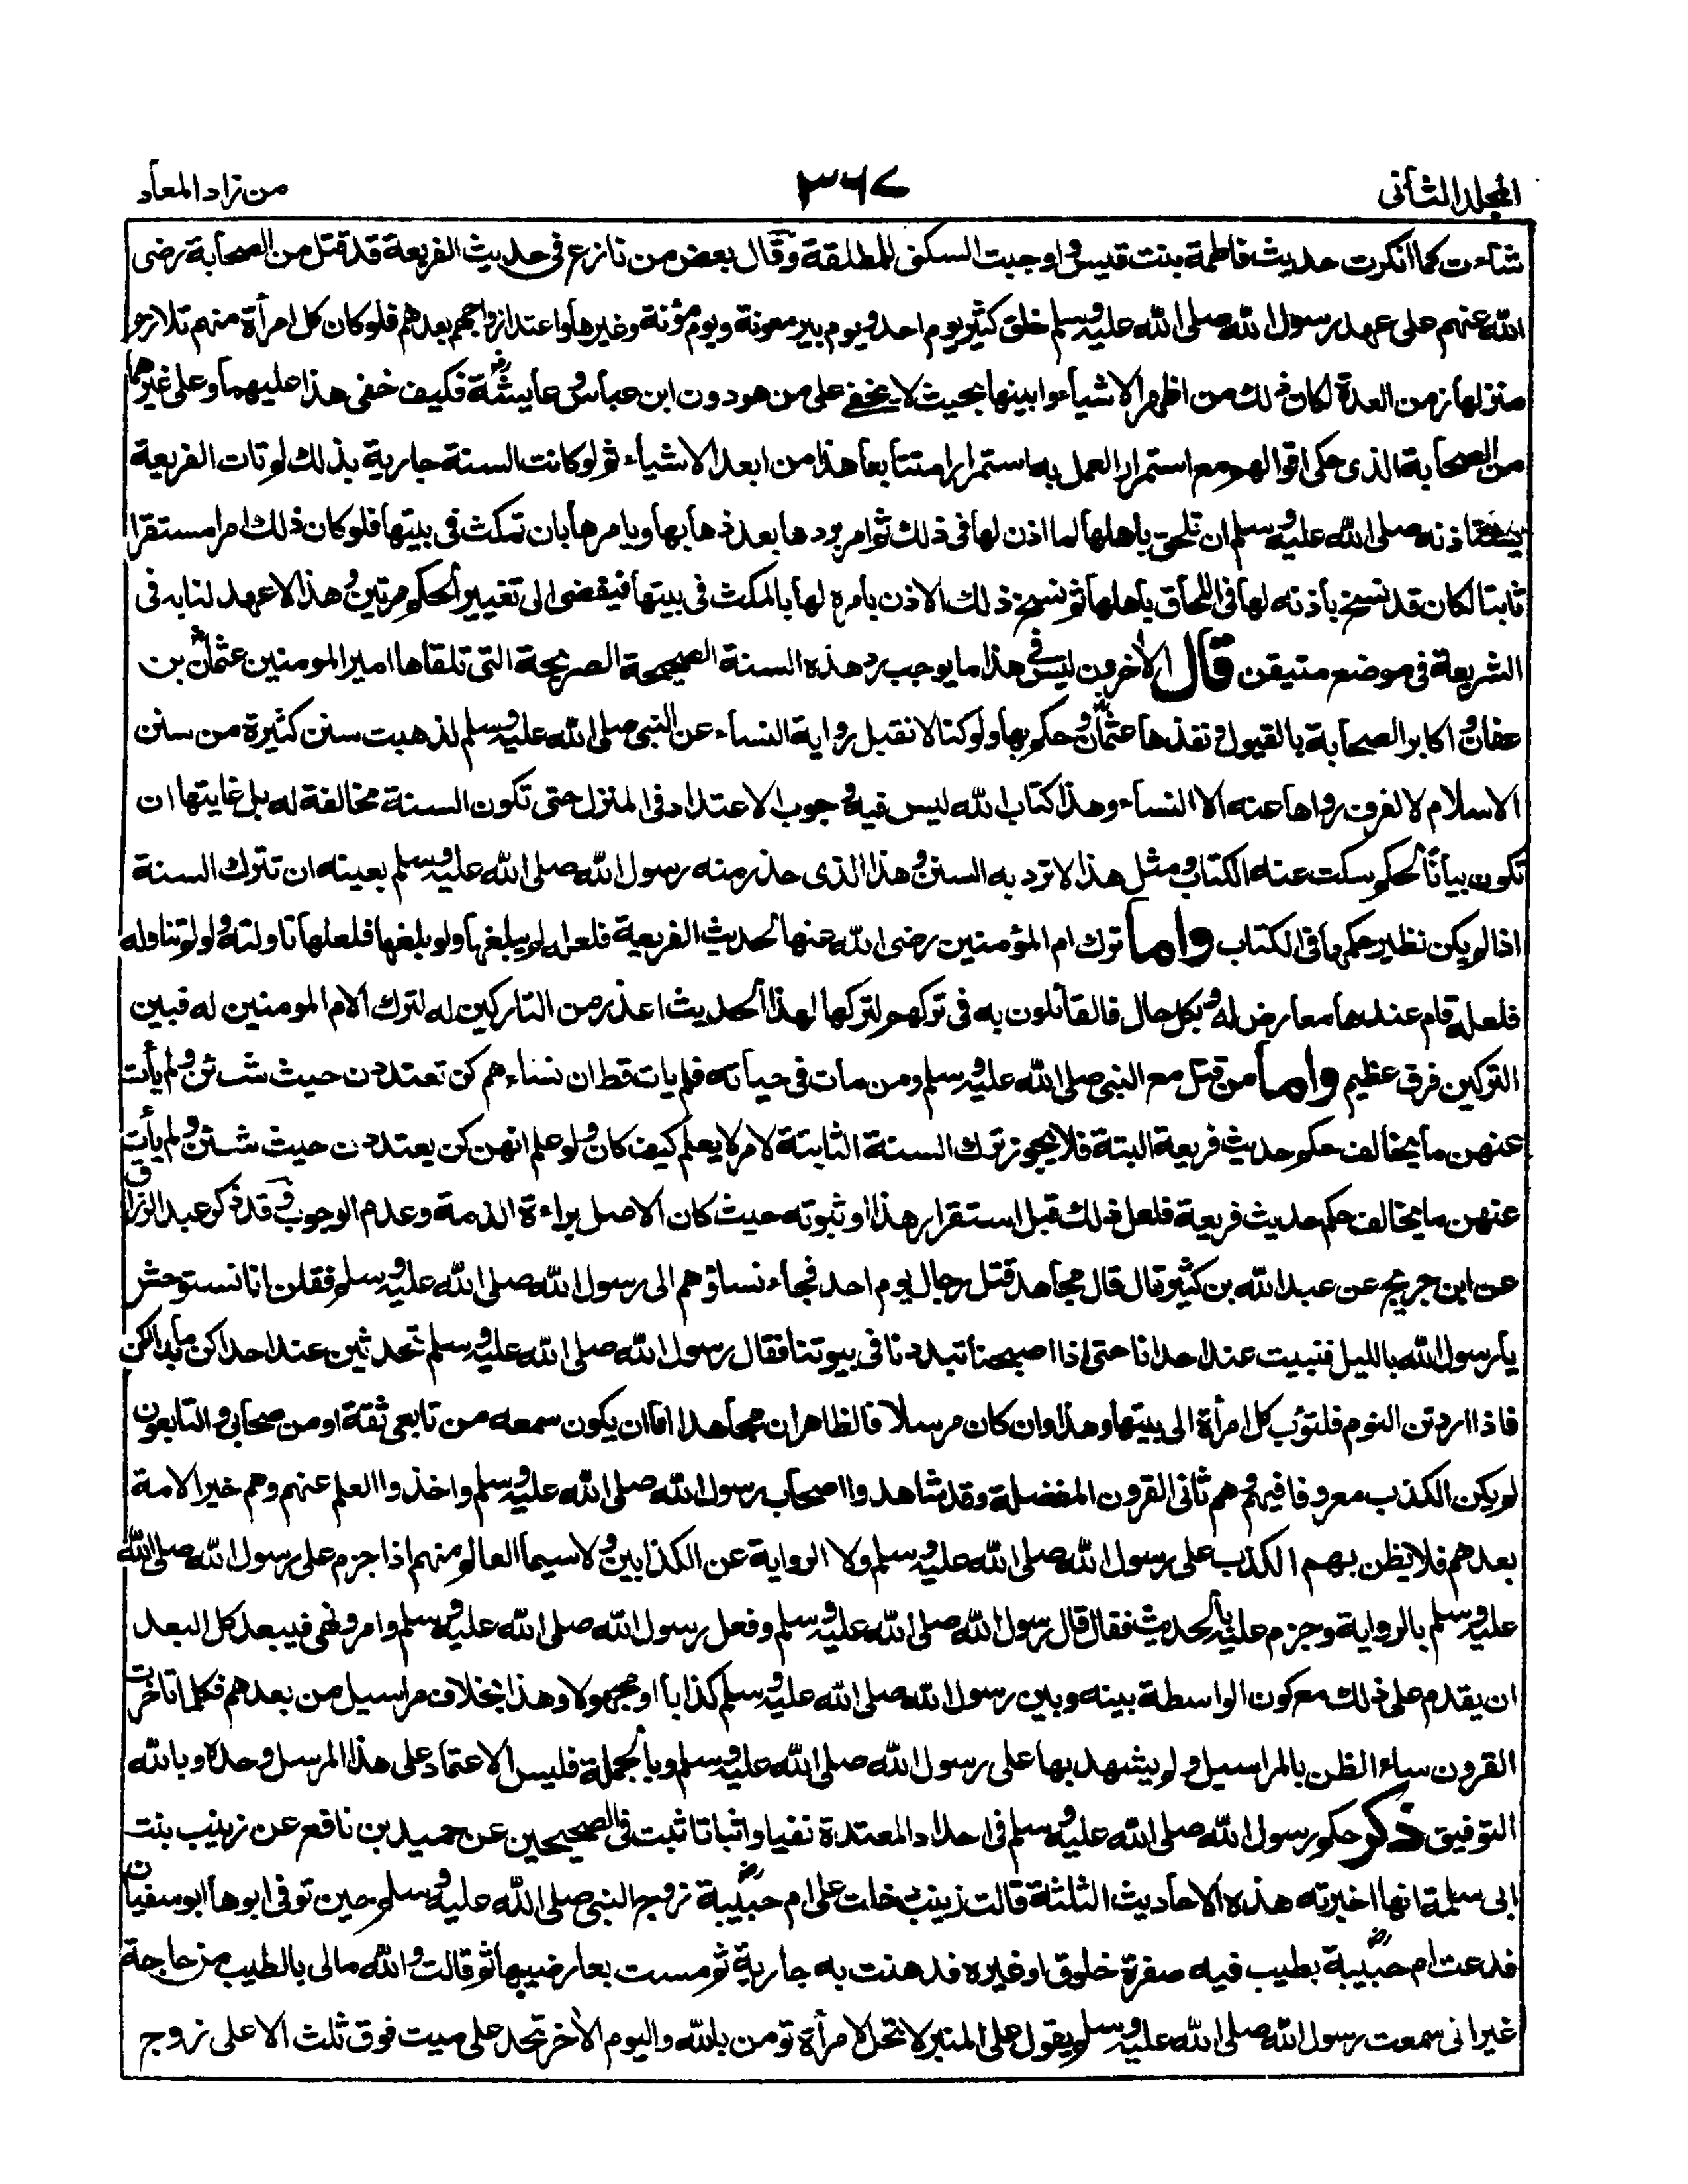 المجلد الثانى
٣٦٧
من زاد المعاد
شاءت كما انكرت حديث فاطمة بنت قيس و اوجبت السكنى للمطلقة وقال بعض من نازع فى حديث الفريعة قد قتل من الصحابة رضى
الله عنهم على عهد رسول الله صلى الله عليه وسلم خلق كثير يوم احد و يوم بير معونة ويوم مؤتة وغيرها واعتد ازواجهم بعدهم فلو كان كل امرأة منهم تلازم
منزلها زمن العدة لكان ذلك من اظهر الاشياء وابينها بحيث لا يخفى على من هو دون ابن عباس و عايشة رض فكيف خفى هذا عليهما وعلى غيرهما
من الصحابة الذى حكى اقوالهم مع استمرار العمل به استمرارا متتابعا هذا من ابعد الاشياء ثم لو كانت السنة جارية بذلك لم تات الفريعة
يستاذنه صلى الله عليه وسلم ان تلحق باهلها لما اذن لها فى ذلك ثم امر بردها بعد ذهابها ويامرها بان تمكث فى بيتها فلو كان ذلك امرا مستقرا
ثابتا لكان قد نسخ باذنه لها فى اللحاق باهلها ثم نسخ ذلك الاذن بامره لها بالمكث فى بيتها فيفضى الى تغيير الحكم مرتين و هذا لا عهد لنا به فى
الشريعة فى موضع متيقن قال الآخرون ليس فى هذا ما يوجب رد هذه السنة الصحيحة الصريحة التى تلقاها امير المومنين عثمان بن
عفان و اكابر الصحابة بالقبول و نفذها عثمان و حكم بها ولو كنا لا نقبل رواية النساء عن النبى صلى الله عليه وسلم لذهبت سنن كثيرة من سنن
الاسلام لا نعرف رواها عنه الا النساء وهذا كتاب الله ليس فيه وجوب الاعتداد فى المنزل حتى تكون السنة مخالفة له بل غايتها ان
تكون بيانا لحكم سكت عنه الكتاب و مثل هذا لا ترد به السنن و هذا الذى حذر منه رسول الله صلى الله عليه وسلم بعينه ان تترك السنة
اذا لم يكن نظير حكمها فى الكتاب واما ترك ام المؤمنين رضى الله عنها لحديث الفريعة فلعله لم يبلغها ولو بلغها فلعلها تاولته ولو لم تتاوله
فلعله قام عندها معارض له و بكل حال فالقائلون به فى تركهم لتركها لهذا الحديث اعذر من التاركين له لترك الام المومنين له فبين
التركين فرق عظيم واما من قتل مع النبى صلى الله عليه وسلم ومن مات فى حياته فلم يات قط ان نساءهم كن تعتددن حيث شئن ولم يأت
عنهن ما يخالف حكم حديث فريعة البتة فلا يجوز ترك السنة الثابتة لامر لا يعلم كيف كان ولو علم انهن كن يعتددن حيث شئن ولم يأت
عنهن ما يخالف حكم حديث فريعة فلعل ذلك قبل استقرار هذا او ثبوته حيث كان الاصل براءة الذمة وعدم الوجوب وقد ذكر عبد الرزاق
عن ابن جريج عن عبد الله بن كثير قال قال مجاهد قتل رجال يوم احد فجاء نساؤهم الى رسول الله صلى الله عليه وسلم فقلن انا نستوحش
يا رسول الله بالليل فنبيت عند احدانا حتى اذا اصبحنا تبددنا فى بيوتنا فقال رسول الله صلى الله عليه وسلم تحدثين عند احداكن ما بدا لكن
فاذا اردتن النوم فلتؤب كل امرأة الى بيتها وهذا وان كان مرسلا فالظاهر ان مجاهدا اما ان يكون سمعه من تابعى ثقة او من صحابى و التابعون
لم يكن الكذب معروفا فيهم و هم ثانى القرون المفضلة وقد شاهدوا اصحاب رسول الله صلى الله عليه وسلم واخذوا العلم عنهم وهم خير الامة
بعدهم فلا يظن بهم الكذب على رسول الله صلى الله عليه وسلم ولا الرواية عن الكذابين ولا سيما العالم منهم اذا جزم على رسول الله صلى الله
عليه وسلم بالرواية وجزم عليه بالحديث فقال قال رسول الله صلى الله عليه وسلم وفعل رسول الله صلى الله عليه وسلم وامر ونهى فيبعد كل البعد
ان يقدم على ذلك مع كون الواسطة بينه وبين رسول الله صلى الله عليه وسلم كذابا او مجهولا وهذا بخلاف مراسيل من بعدهم فكلما تاخرت
القرون ساء الظن بالمراسيل ولم يشهد بها على رسول الله صلى الله عليه وسلم وبالجملة فليس الاعتماد على هذا المرسل وحده وبالله
التوفيق ذكر حكم رسول الله صلى الله عليه وسلم فى احداد المعتدة نفيا واثباتا ثبت فى الصحيحين عن حميد بن نافع عن زينب بنت
ابى سلمة انها اخبرته هذه الاحاديث الثلثة قالت زينب دخلت على ام حبيبة رض زوج النبى صلى الله عليه وسلم حين توفى ابوها ابو سفيان
فدعت ام حبيبة رض بطيب فيه صفرة خلوق او غيره فدهنت به جارية ثم مست بعارضيها ثم قالت والله مالى بالطيب من حاجة
غير انى سمعت رسول الله صلى الله عليه وسلم يقول على المنبر لا تحل لامرأة تومن بالله واليوم الآخر تحد على ميت فوق ثلث الا على زوج